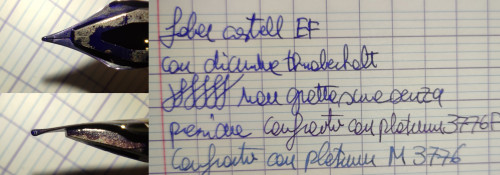 faber castell EF
con dicitura thunberholt
non gratta se me senza
pressione confronto con platinum 3776 F
Confronto con platinum M 3776